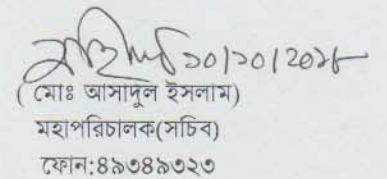 ১০/১০/২০১৮
( মোঃ আসাদুল ইসলাম)
মহাপরিচালক(সচিব)
ফোন:৪৯৩৪৯৩২৩